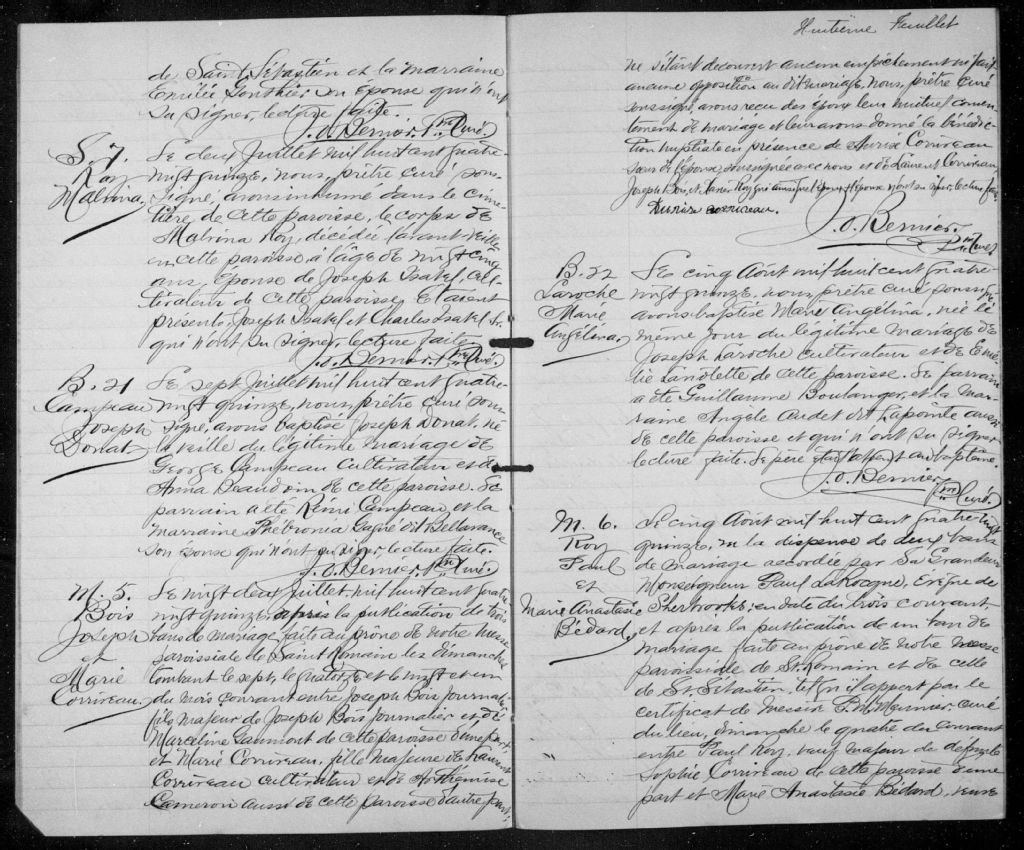 de Saint Sébastien et la marraine
Emilie Gonthier son épouse qui n'ont
su signer, lecture faite.
J. O. Bernier, Ptre Curé.
S. 7.
Roy
Malvina
Le deux Juillet mil huit cent quatre-
vingt quinze, nous, prêtre curé sous-
signé, avons inhumé dans le cime-
tière de cette paroisse, le corps de
Malvina Roy, décédée l'avant veille
en cette paroisse à l'âge de vingt cinq
ans, épouse de Joseph Isabel, cul-
tivateur de cette paroisse. Etaient
présents, Joseph Isabel et Charles Isabel Sr.
qui n'ont su signer, lecture faite.
J. O. Bernier, Ptre Curé.
B. 21
Campeau
Joseph
Donat
Le sept Juillet mil huit cent quatre-
vingt quinze, nous, prêtre curé sous-
signé, avons baptisé Joseph Donat, né
la veille du légitime mariage de
George Campeau cultivateur et de
Anna Beaudoin de cette paroisse. Le
parrain a été Rémi Campeau, et la
marraine Phébronia Gagné dit Bellavance
son épouse qui n'ont su signer, lecture faite.
J. O. Bernier, Ptre Curé.
M. 5.
Bois
Joseph
et
Marie
Corriveau
Le vingt deux Juillet, mil huit cent quatre
vingt quinze, après la publication de trois
bans de mariage, faite au prône de notre messe
paroissiale de Saint Romain les dimanches
tombant le sept, le quatorze et le vingt et un
du mois courant entre Joseph Bois journalier
fils majeur de Joseph Bois journalier et de
Marceline Gaumont de cette paroisse d'une part,
et Marie Corriveau, fille majeure de Laurent
Corriveau cultivateur et de Arthémise
Cameron aussi de cette paroisse d'autre part,
Huitième Feuillet
ne s'étant découvert aucun empêchement ni fait
aucune opposition au dit mariage, nous, prêtre curé
soussigné, avons reçu des époux leur mutuel consen-
tement de mariage et leur avons donné la bénédic-
tion nuptiale en présence de Corriveau
soeur de l'épouse, soussignée avec nous et de Laurent Corriveau,
Joseph Bois, et Roy qui ainsi que l'époux et l'épouse n'ont su signer, lecture faite
Corriveau.
J. O. Bernier,
Ptre Curé
B. 22
Laroche
Marie
Angélina
Le cinq Août mil huit cent quatre-
vingt quinze, nous, prêtre curé soussigné
avons baptisé Marie Angélina, née le
même jour du légitime mariage de
Joseph Laroche cultivateur et de Emé-
lie de cette paroisse. Le parrain
a été Guillaume Boulanger, et la mar-
raine Angèle Audet dit Lapointe aussi
de cette paroisse et qui n'ont su signer
lecture faite. Le père était absent au baptême.
J. O. Bernier
Ptre Curé.
M. 6.
Roy
Paul
et
Marie Anastasie
Bédard
Le cinq Août mil huit cent quatre vingt
quinze, vu la dispense de deux bans
de mariage accordée par Sa Grandeur
Monseigneur Paul LaRocque, Evêque de
Sherbrooke; en date du trois courant,
et après la publication de un ban de
mariage faite au prône de notre messe
paroissiale de St. Romain et de celle
de St. Sébastien, tel qu'il appert par le
certificat de messire Meunier, curé
du lieu, dimanche le quatre du courant
entre Paul Roy, veuf majeur de defunte
Sophie Corriveau de cette paroisse d'une
part et Marie Anastasie Bédard, veuve